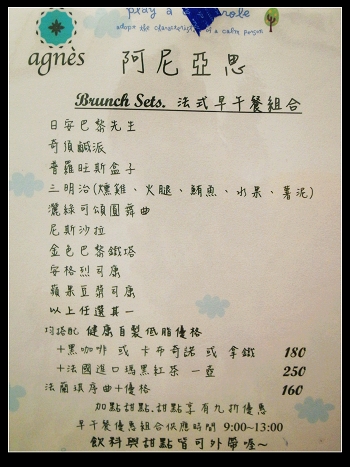 play a role
adopt the characteristics of a calm person
agnès 阿尼亞思
Brunch Sets. 法式早午餐組合
日安巴黎先生
奇頂鹹派
普羅旺斯盒子
三明治(燻雞、火腿、鮪魚、水果、薯泥)
濃綠可頌圓舞曲
尼斯沙拉
金色巴黎鐵塔
安格烈可康
蘋果豆漿可康
以上任選其一
均搭配 健康自製低脂優格
+黑咖啡 或 卡布奇諾 或 拿鐵 180
+法國進口瑪黑紅茶 一壺 250
法蘭琪序曲+優格 160
加點甜點.甜點享有九折優惠
早午餐優惠組合供應時間 9:00~13:00
飲料與甜點皆可外帶喔~